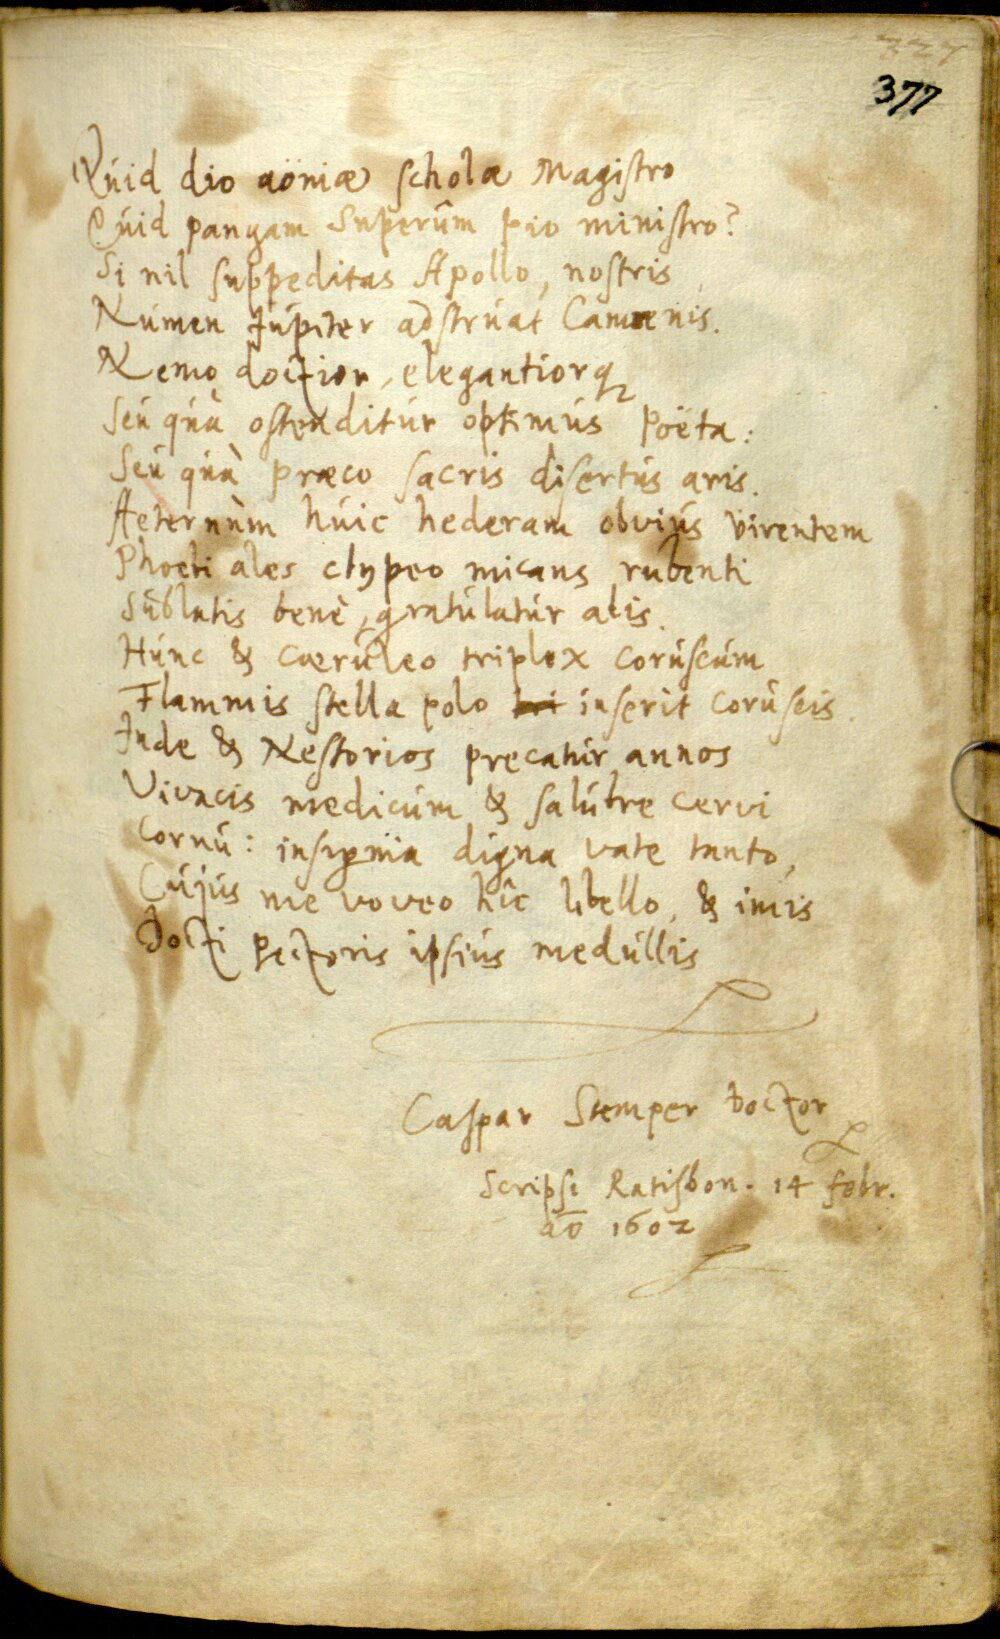 377
Quid dio aöniæ scholæ Magistro
Quid pangam Superûm pio ministro?
Si nil suppeditas Apollo, nostris
Numen Jupiter adstruat Camœnis.
Nemo doctior, elegantiorq
Seu quà ostenditur optimus Poëta:
Seu quà præco sacris disertus aris.
Aeternùm huic hederam obvius virentem
Phoebi ales clypeo micans rubenti
Sublatis benè, gratulatur alis.
Hunc & cæruleo triplex coruscum
Flammis stella polo inserit coruscis.
Inde & Nestorios precatur annos
Vivacis medicum & salubre cervi
Cornu: insignia digna vate tanto,
Cujus me voveo hîc libello, & imis
Docti pectoris ipsius medullis
Caspar Stemper Doctor
Scripsi Ratisbon. 14 febr.
aō 1602